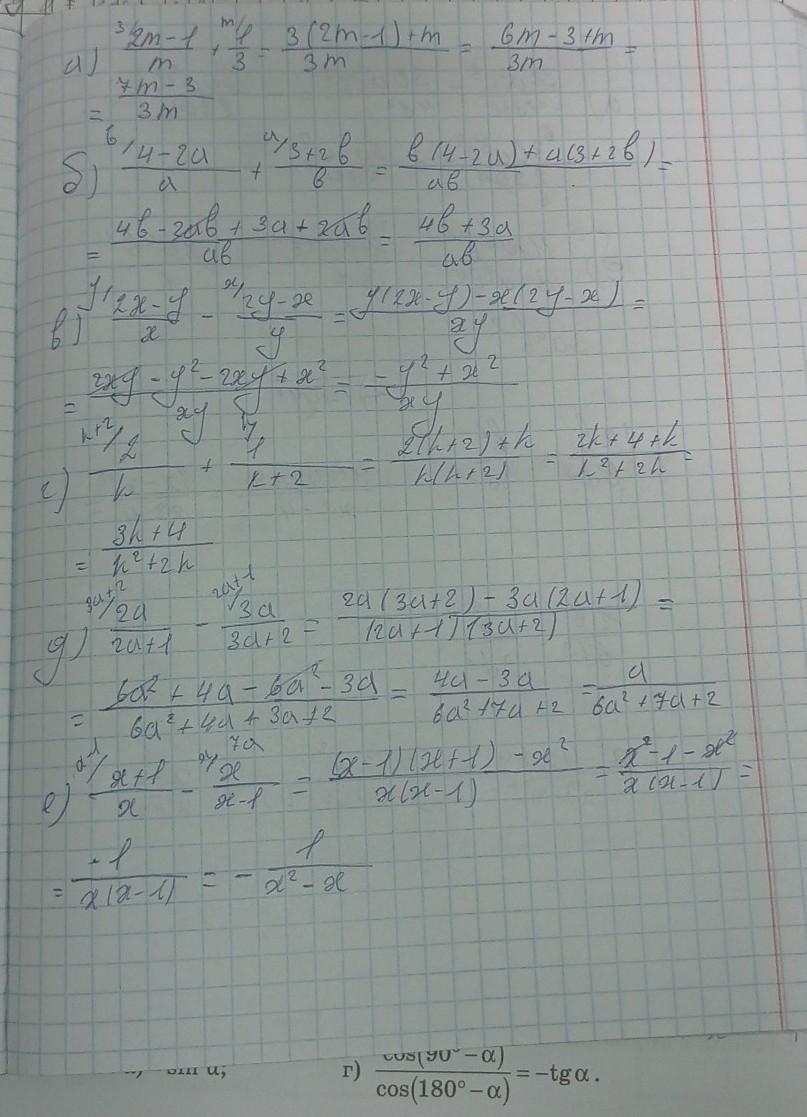 а) ³/(2m-1)/m + ᵐ/1/3 = (3(2m-1)+m)/3m = (6m-3+m)/3m =
= (7m-3)/3m
б) ᵇ/(4-2a)/a + ᵃ/(3+2b)/b = (b(4-2a)+a(3+2b))/ab =
= (4b-2ab+3a+2ab)/ab = (4b+3a)/ab
в) ʸ/(2x-y)/x - ˣ/(2y-x)/y = (y(2x-y)-x(2y-x))/xy =
= (2xy-y²-2xy+x²)/xy = (-y²+x²)/xy
г) ᵏ⁺²/2/k + ᵏ/1/(k+2) = (2(k+2)+k)/(k(k+2)) = (2k+4+k)/(k²+2k) =
= (3k+4)/(k²+2k)
д) ³ᵃ⁺²/2a/(2a+1) - ²ᵃ⁺¹/3a/(3a+2) = (2a(3a+2)-3a(2a+1))/((2a+1)(3a+2)) =
= (6a²+4a-6a²-3a)/(6a²+4a+3a+2) = (4a-3a)/(6a²+7a+2) = a/(6a²+7a+2)
7a
е) ˣ⁻¹/(x+1)/x - ˣ/x/(x-1) = ((x-1)(x+1)-x²)/(x(x-1)) = (x²-1-x²)/(x(x-1)) =
= -1/(x(x-1)) = - 1/(x²-x)
г) cos(90°-α)/cos(180°-α) = -tg α.